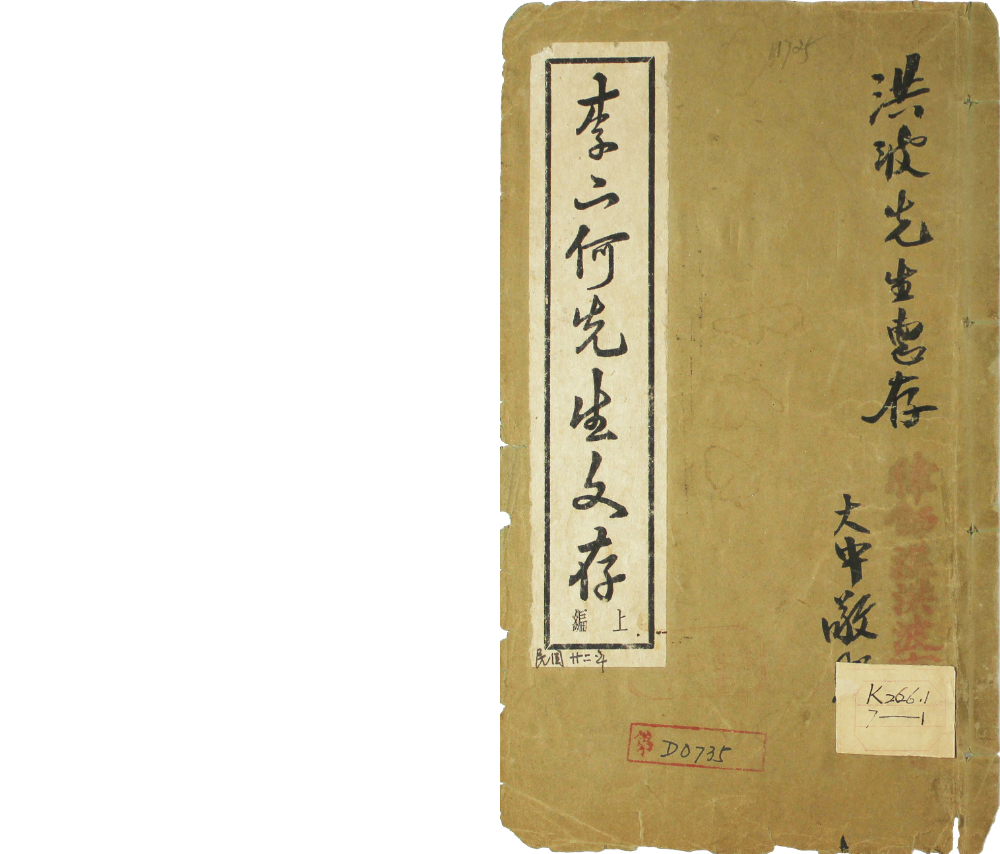 洪波先生惠存
大中敬
李二何先生文存
上編
民国廿二年
第 D0735
K266.1
7—1
11725